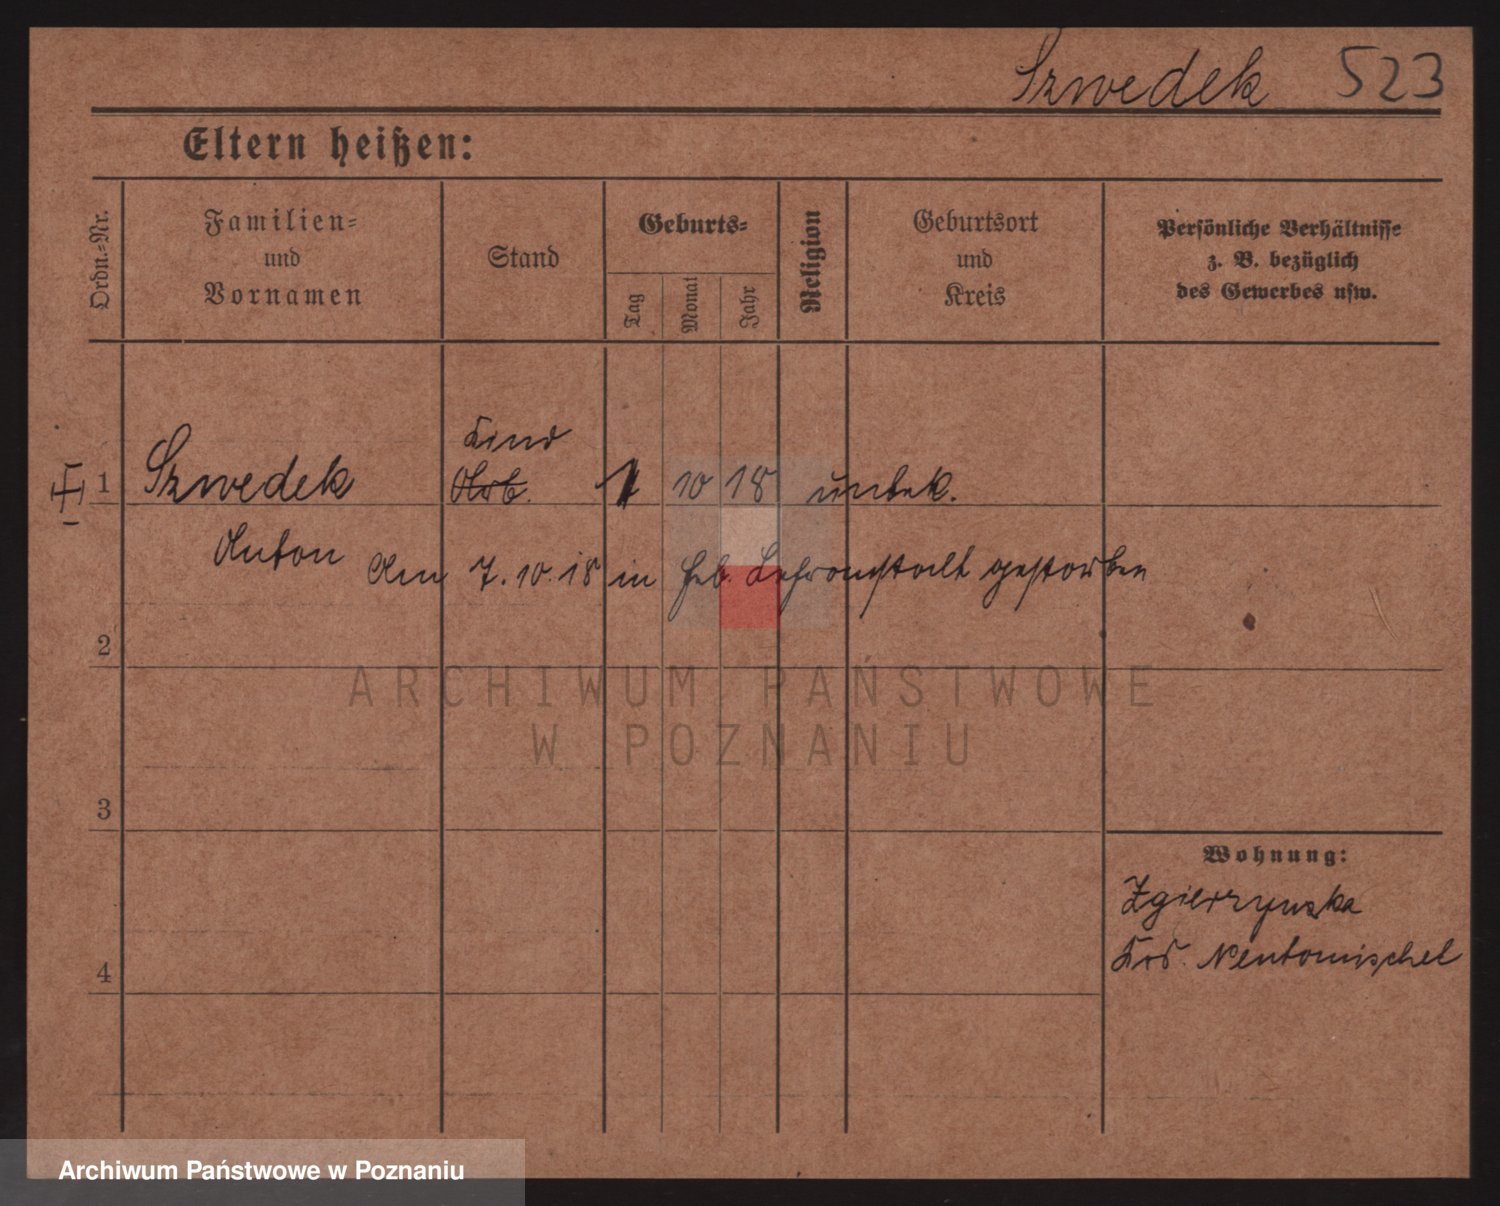 Szwedek 523
Eltern heißen:
Ordn.-Nr.
Familien-
und
Vornamen
Stand
Geburts-
Tag
Monat
Jahr
Religion
Geburtsort
und
Kreis
Persönliche Verhältnisse
z. B. bezüglich
des Gewerbes usw.
Kind
1 Szwedek Arb. 1 10 18 unbek.
Anton
Am 7.10.18 in Heb. Lehranstalt gestorben
2
3
4
Wohnung:
Zgierzynska
Krs. Neutomischel
ARCHIWUM PAŃSTWOWE
W POZNANIU
Archiwum Państwowe w Poznaniu